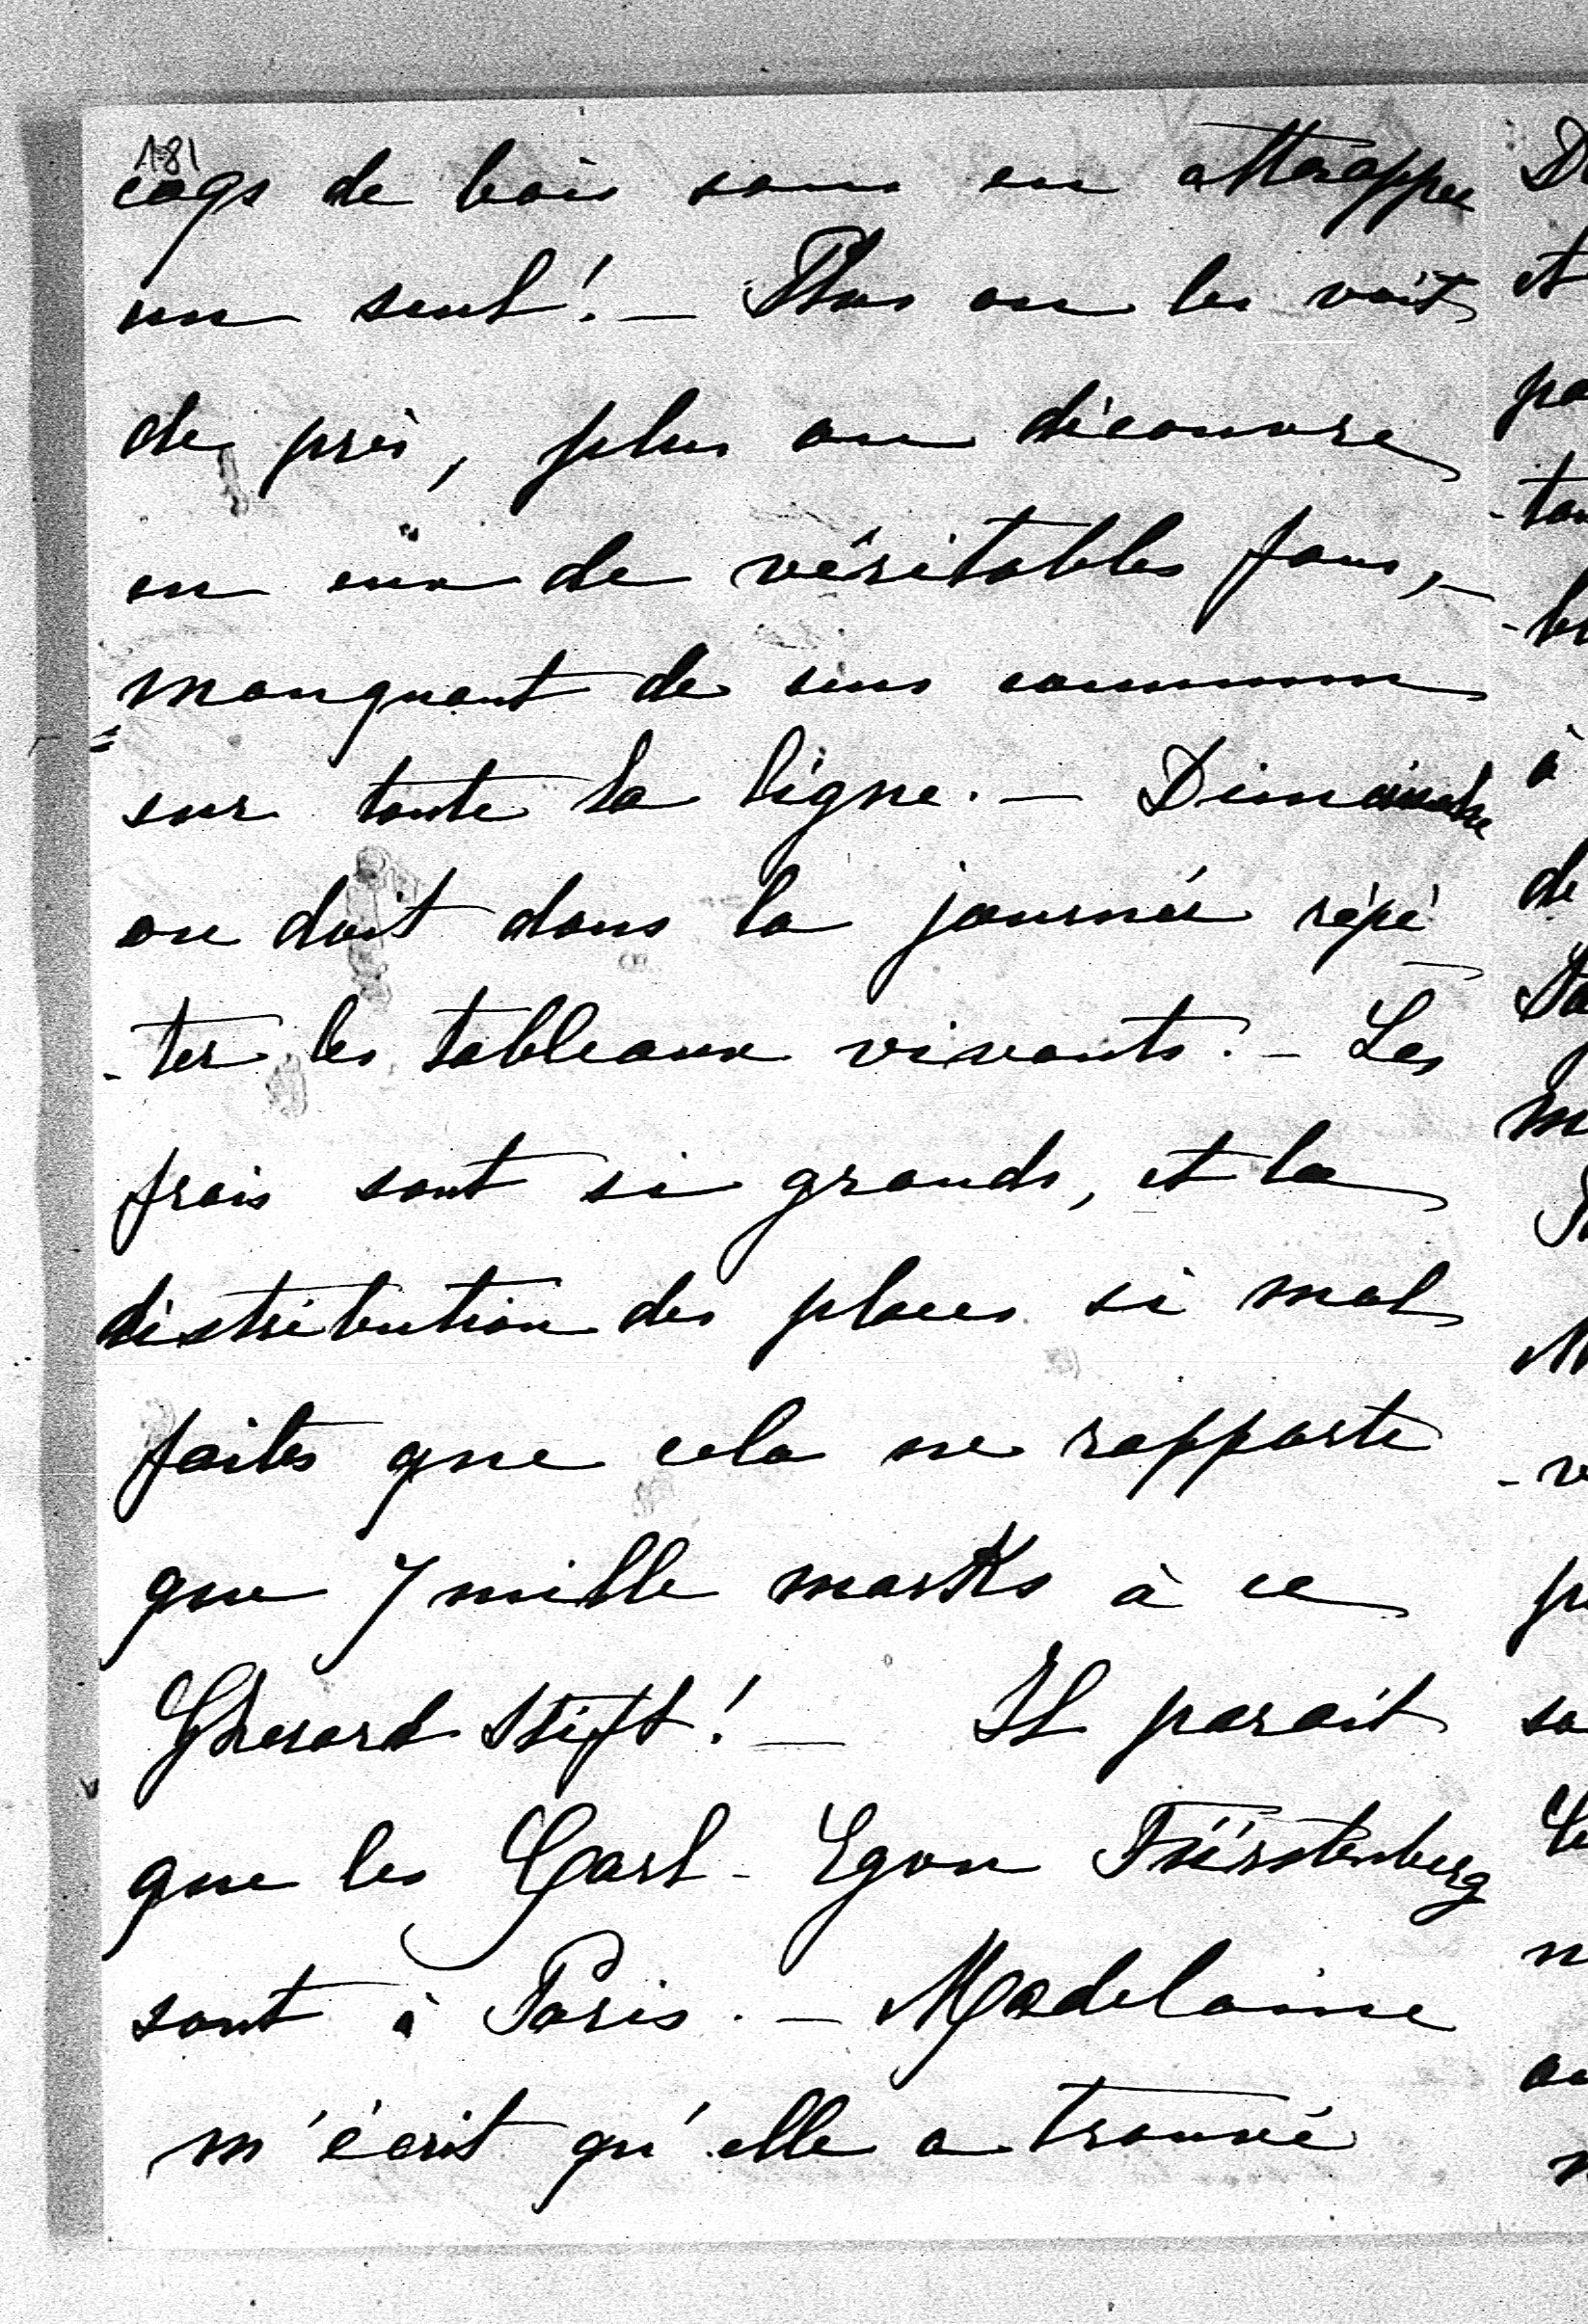 181
coqs de bois sans en attrapper
un seul! — Plus on les voit
de près, plus on découvre
en eux de véritables fous, —
manquant de sens commun
sur toute la ligne. — Dimanche
on doit dans la journée répé
-ter les tableaux vivants. — Les
frais sont si grands, et la
distribution des places si mal
faites que cela ne rapporte
que 7 mille marks à ce
Gherard Stift! — Il parait
que les Carl-Egon Fürstenberg
sont à Paris. — Madelaine
m'écrit qu'elle a trouvé